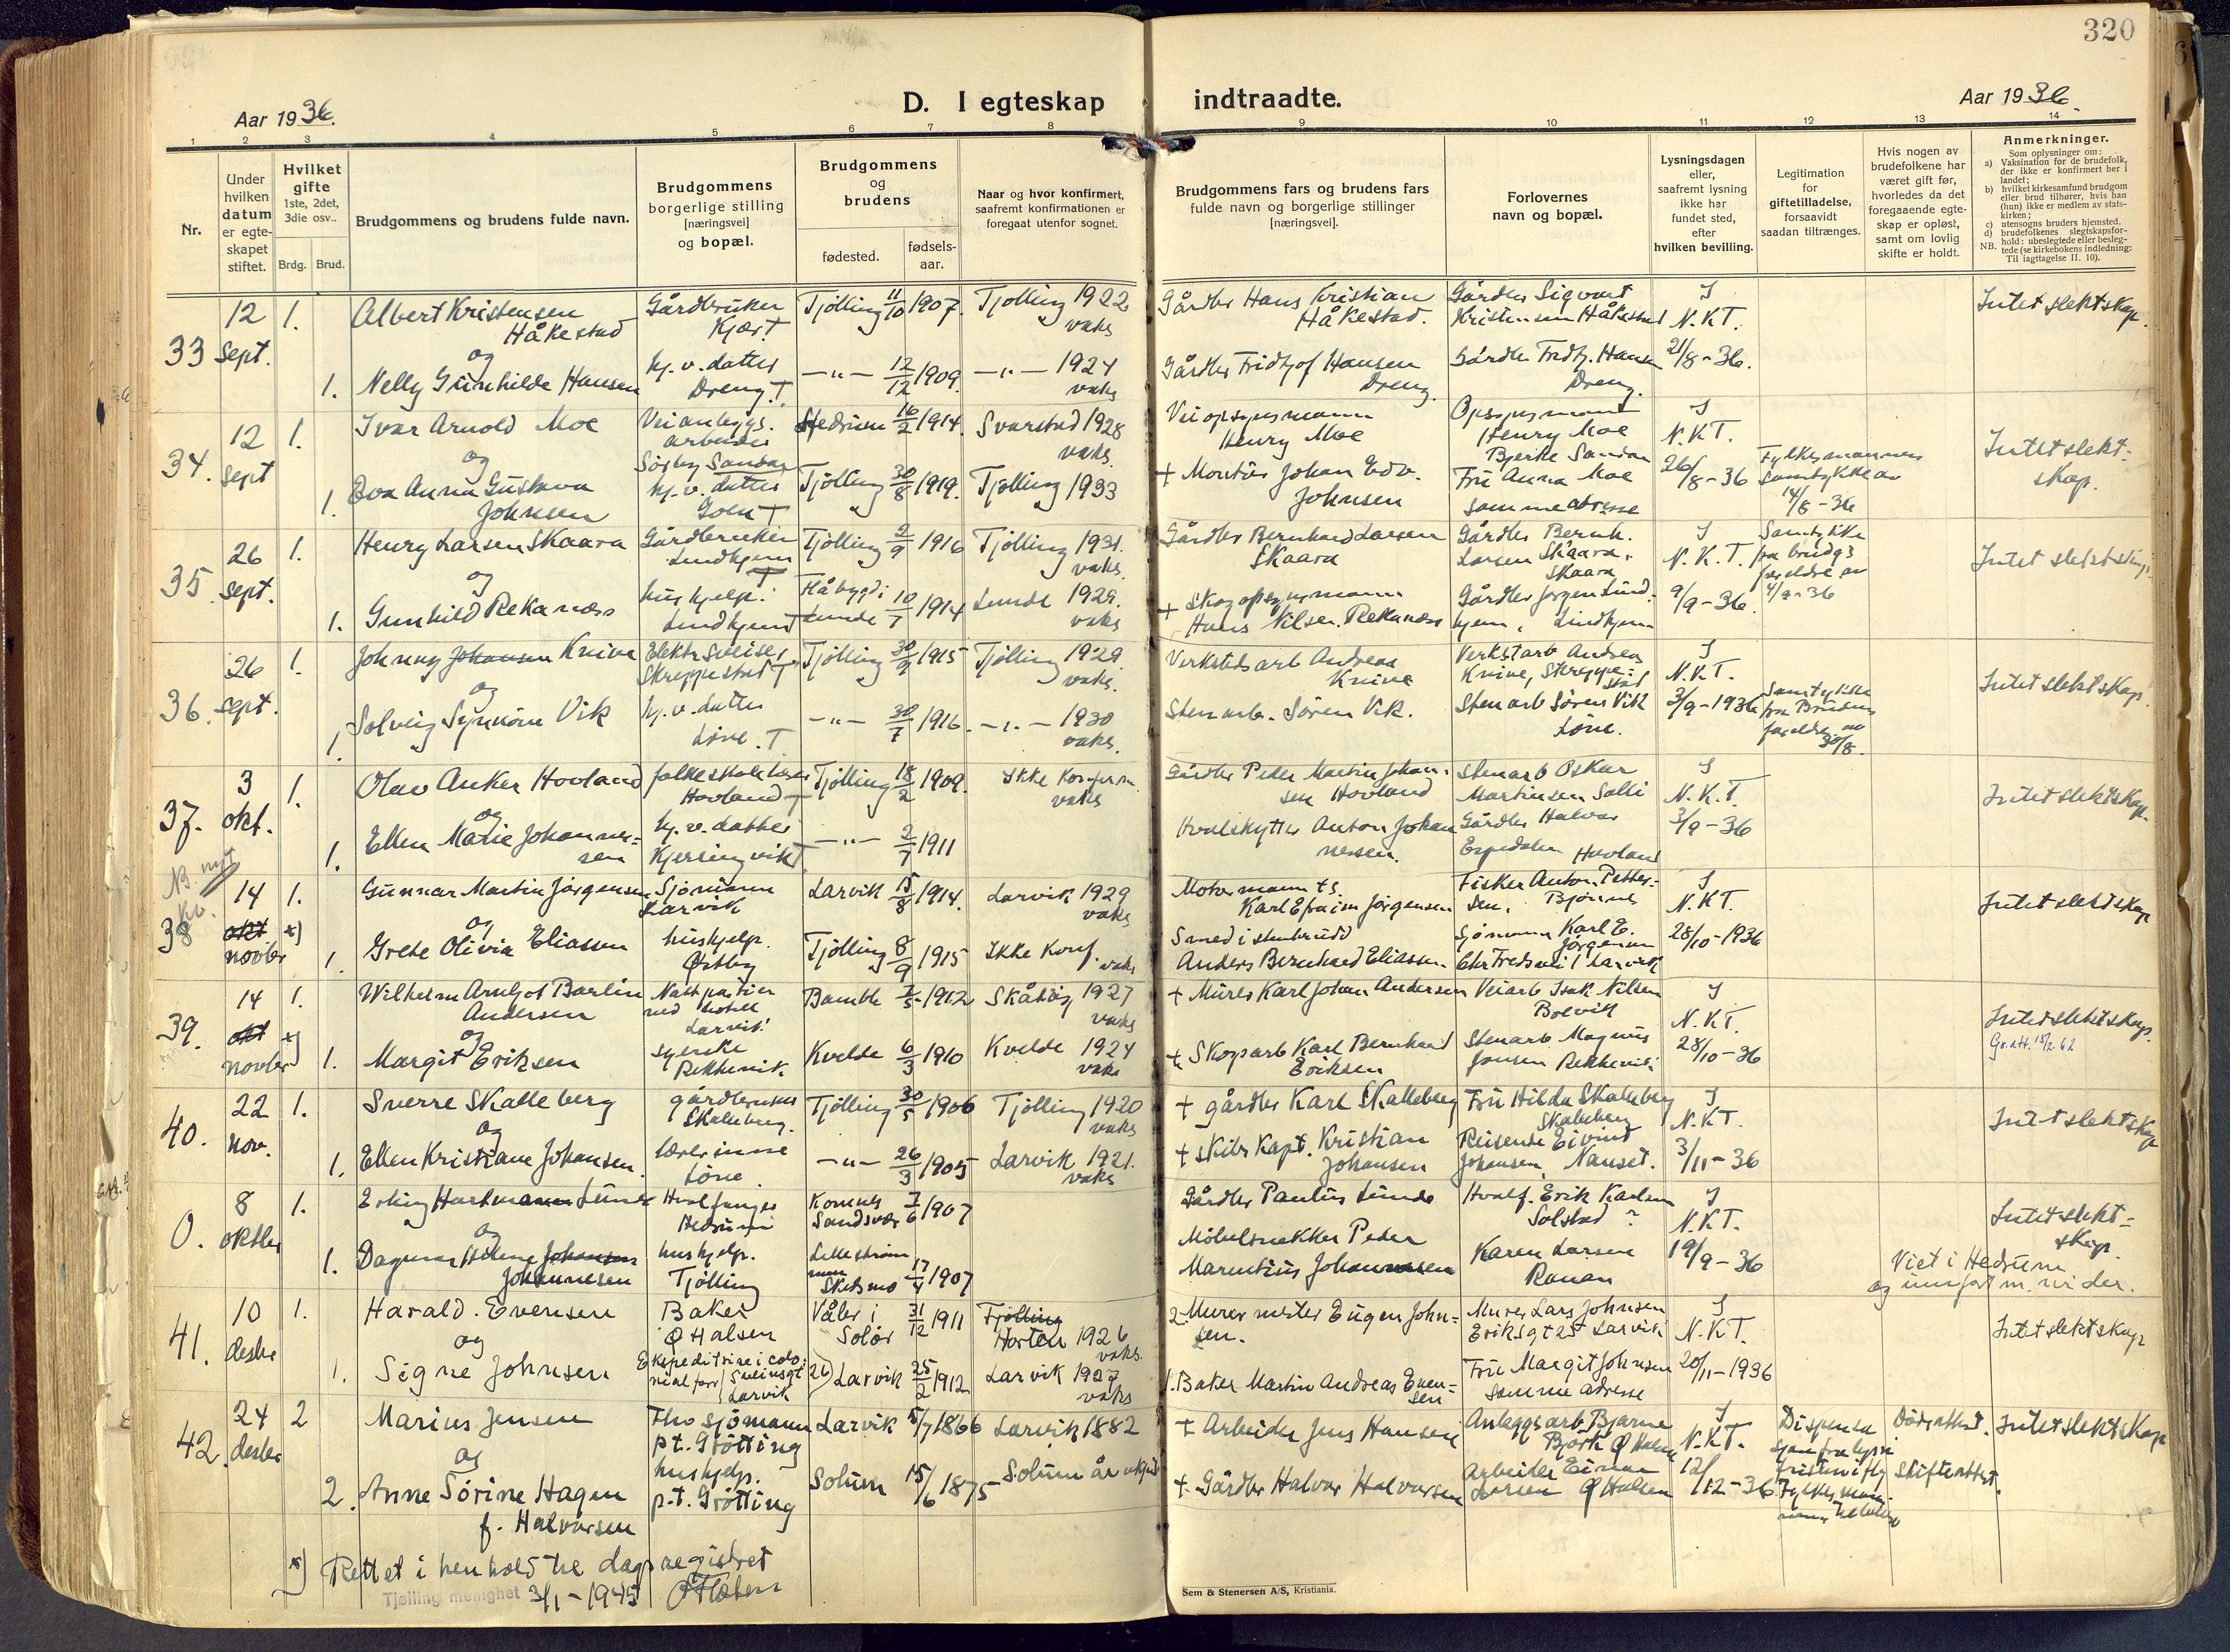 320
Aar 1936.
D. I egteskap indtraadte.
Aar 1936.
1 2 3 4 5 6 7 8 9 10 11 12 13 14
Nr.
Under hvilken datum er egte-skapet stiftet.
Hvilket gifte 1ste, 2det, 3die osv..
Brdg. Brud.
Brudgommens og brudens fulde navn.
Brudgommens borgerlige stilling [næringsvei] og bopæl.
Brudgommens og brudens
fødested.
fødsels-aar.
Naar og hvor konfirmert, saafremt konfirmationen er foregaat utenfor sognet.
Brudgommens fars og brudens fars fulde navn og borgerlige stillinger [næringsvei].
Forlovernes navn og bopæl.
Lysningsdagen eller, saafremt lysning ikke har fundet sted, efter hvilken bevilling.
Legitimation for giftetilladelse, forsaavidt saadan tiltrænges.
Hvis nogen av brudefolkene har været gift før, hvorledes da det foregaaende egte-skap er opløst, samt om lovlig skifte er holdt.
Anmerkninger.
Som oplysninger om:
a) Vaksination for de brudefolk, der ikke er konfirmert her i landet;
b) hvilket kirkesamfund brudgom eller brud tilhører, hvis han (hun) ikke er medlem av stats-kirken;
c) utensogns bruders hjemsted.
d) brudefolkenes slegtskapsfor-hold: ubeslegtede eller besleg-tede (se kirkebokens indledning:
NB. Til iagttagelse II. 10).
33 12 Sept. 1. Albert Kristensen Håkestad Gårdbruker Kjær T Tjølling 11/10 1907. Tjølling 1922 vaks Gårdbr Hans Kristian Håkestad. Gårdbr Sigvart Kristensen Håkestad I N.K.T. 21/8-36. Intet slektskap.
og
1. Nelly Gunhilde Hansen hj.v. datter Dreng. T. -"- 12/12 1909. -"- 1924 vaks Gårdbr Fridtjof Hansen Dreng Gårdbr Fridtj. Hansen Dreng.
34. 12 Sept 1. Ivar Arnold Moe Veianleggs. arbeider Sørby Sandar Hedrum 16/2 1914. Svarstad 1928 vaks. Veiopsynsmann Henry Moe Opsynsmann Henry Moe Bjerke Sandar I N.K.T. 26/8-36 Fylkesmannens Samtykke av 14/8-36 Intet slekt-skap.
og
1. Eva Anna Gustava Johnsen hj.v. datter Goen T Tjølling 30/8 1919. Tjølling 1933 + Montør Johan Edv. Johnsen Fru Anna Moe samme adresse
35. 26 sept. 1. Henry Larsen Skaara Gårdbruker Lindhjem T Tjølling 2/9 1916 Tjølling 1931. vaks. Gårdbr Bernhard Larsen Skaara Gårdbr Bernh. Larsen Skaara, Skaara I N.K.T. 9/9-36. Samtykke fra brudg's foreldre av 4/9-36 Intet slektskap
og
1. Gunhild Rekanæs hushjelp. Lindhjem T Flåbygd i Lunde 10/7 1914 Lunde 1929. vaks + Skogopsynsmann Hans Nilsen Rekanæs Gårdbr Jørgen Lind-hjem, Lindhjem
36. 26 sept. 1. Johnny Johansen Knive Elektr sveiser Skreppestad T Tjølling 30/9 1915 Tjølling 1929. vaks. Verkstedsarb Andreas Knive Verkstarb Andreas Knive, Skreppe-stad I N.K.T. 3/9-1936 Samtykke fra Brudens foreldre av 30/8. Intet slektskap
og
1. Solveig Synnøve Vik hj.v. datter Løve. T -"- 30/7 1916. -"- 1930 vaks. Stenarb. Søren Vik. Stenarb Søren Vik Løve.
37. 3 okt. 1. Olav Anker Hovland folkeskolelærer Hovland T Tjølling 18/2 1909. Ikke konferm. vaks Gårdbr Peder Martin Johan-sen Hovland Stenarb Oskar Martinsen Solli I N.K.T. 3/9-36 Intet slektskap.
og
1. Ellen Marie Johannes-sen hj.v. datter Kjerringvik T -"- 2/7 1911 Hvalskytter Anton Johan nessen. Gårdbr Halvor Espedalen Hovland
38 14 okt novbr 1. x) Gunnar Martin Jørgensen Sjømann Larvik Larvik 15/8 1914. Larvik 1929 vaks Motormann ts Karl Efraim Jørgensen Fisker Anton Petter-sen, Bjønnes I N.K.T. 28/10-1936 Intet slektskap
og
1. Grete Olivia Eliassen hushjelp. Østby Tjølling 8/9 1915 Ikke konf. vaks Smed i stenbrudd Anders Bernhard Eliassen. Sjømann Karl E. Jørgensen Chr Fredsvei 1 Larvik
39. 14 okt novbr 1. x) Wilhelm Arnljot Berlin Andersen Nattportier ved hotell Larvik Bamble 7/5-1912 Skåtøy 1927 vaks + Murer Karl Johan Andersen Veiarb Isak Nilsen Bolvik I N.K.T. 28/10-36 Intet slektskap.
og
1. Margit Eriksen syerske Rekkevik Kvelde 6/3 1910 Kvelde 1924 vaks + Skogarb Karl Bernhard Eriksen Stenarb Magnus Jansen Rekkevik
40. 22 Nov. 1. Sverre Skalleberg gårdbruker Skalleberg. Tjølling 30/5 1906 Tjølling 1920 vaks + gårdbr Karl Skalleberg Fru Hilda Skalleberg Skalleberg I N.K.T. 3/11-36 Intet slektskap
og
1. Ellen Kristiane Johansen. Lærerinne Løve -"- 26/3 1905 Larvik 1921. vaks + Skibskapt. Kristian Johansen Reisende Eivind Johansen, Nanset.
0. 8 oktbr 1. Erling Hartmann Lunde Hvalfanger Hedrum Komnes Sandsvær 7/6 1907 Gårdbr Paulus Lunde Hvalf. Erik Karlsen Solstad? I N.K.T. 19/9-36 Intet slekt-skap.
og
1. Dagmar Helene Johansen Johannesen hushjelp. Tjølling Lillestrøm Skedsmo 17/4 1907 Møbelsnekker Peder Marentius Johannesen Karen Larsen Ranan Viet i Hedrum
41. 10 desbr 1. Harald. Evensen Baker Ø Halsen Våler i Solør 31/12 1911 Tjølling Horten 1926 vaks. 2. Murermester Eugen John-sen. Murer Lars Johnsen Eriksgt 25 Larvik I N.K.T. 20/11-1936 Intet slektskap
og
1. Signe Johnsen Ekspeditrise i colo-nialforr Larvik Larvik 25/2 1912 Larvik 1927 vaks 1. Baker Martin Andreas Even-sen Fru Margit Johnsen samme adresse
42. 24 desbr 2 Marius Jensen Fhv sjømann p.t. Grøtting Larvik 5/7 1866 Larvik 1882 + Arbeider Jens Hansen Anleggsarb Bjarne Bjørk Ø Halsen I N.K.T. 12/12-36 Dødsattest. Skifteattest. Intet slektskap
og
2. Anne Sørine Hagen f. Halvorsen hushjelp. p.t. Grøtting Solum 15/6 1875 Solum + Gårdbr Halvor Halvorsen Arbeider Einar Larsen Ø Halsen
x) Rettet i henhold til dagsregistret
Tjølling menighet 3/1-1945
Sem & Stenersen A/S, Kristiania.